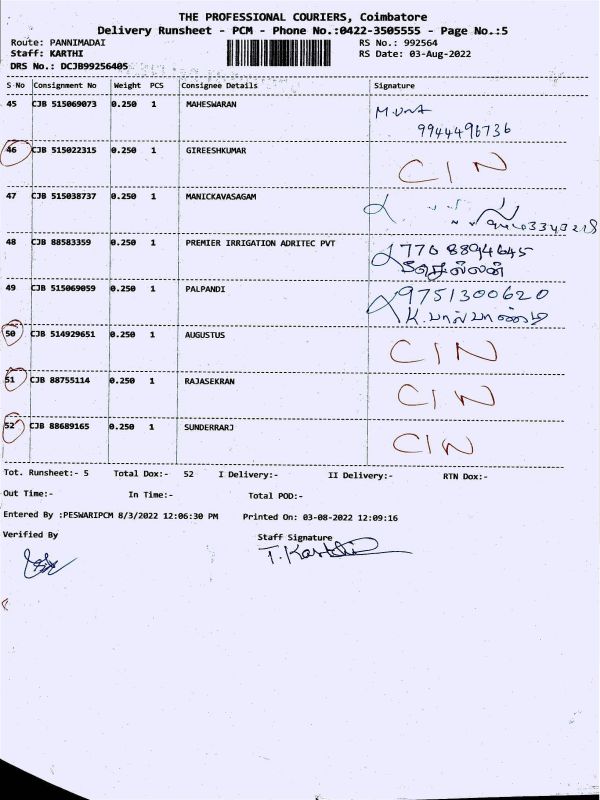 THE PROFESSIONAL COURIERS, Coimbatore
Delivery Runsheet - PCM - Phone No.:0422-3505555 - Page No.:5
Route: PANNIMADAI RS No.: 992564
Staff: KARTHI RS Date: 03-Aug-2022
DRS No.: DCJB99256405
S No Consignment No Weight PCS Consignee Details Signature
45 CJB 515069073 0.250 1 MAHESWARAN
9944496736
46 CJB 515022315 0.250 1 GIREESHKUMAR CIN
47 CJB 515038737 0.250 1 MANICKAVASAGAM
48 CJB 88583359 0.250 1 PREMIER IRRIGATION ADRITEC PVT 770 8894645
49 CJB 515069059 0.250 1 PALPANDI 9751300620
K. பால்பாண்டி
50 CJB 514929651 0.250 1 AUGUSTUS CIN
51 CJB 88755114 0.250 1 RAJASEKRAN CIN
52 CJB 88689165 0.250 1 SUNDERRARJ CIN
Tot. Runsheet:- 5 Total Dox:- 52 I Delivery:- II Delivery:- RTN Dox:-
Out Time:- In Time:- Total POD:-
Entered By :PESWARIPCM 8/3/2022 12:06:30 PM Printed On: 03-08-2022 12:09:16
Verified By Staff Signature
T. Karthi